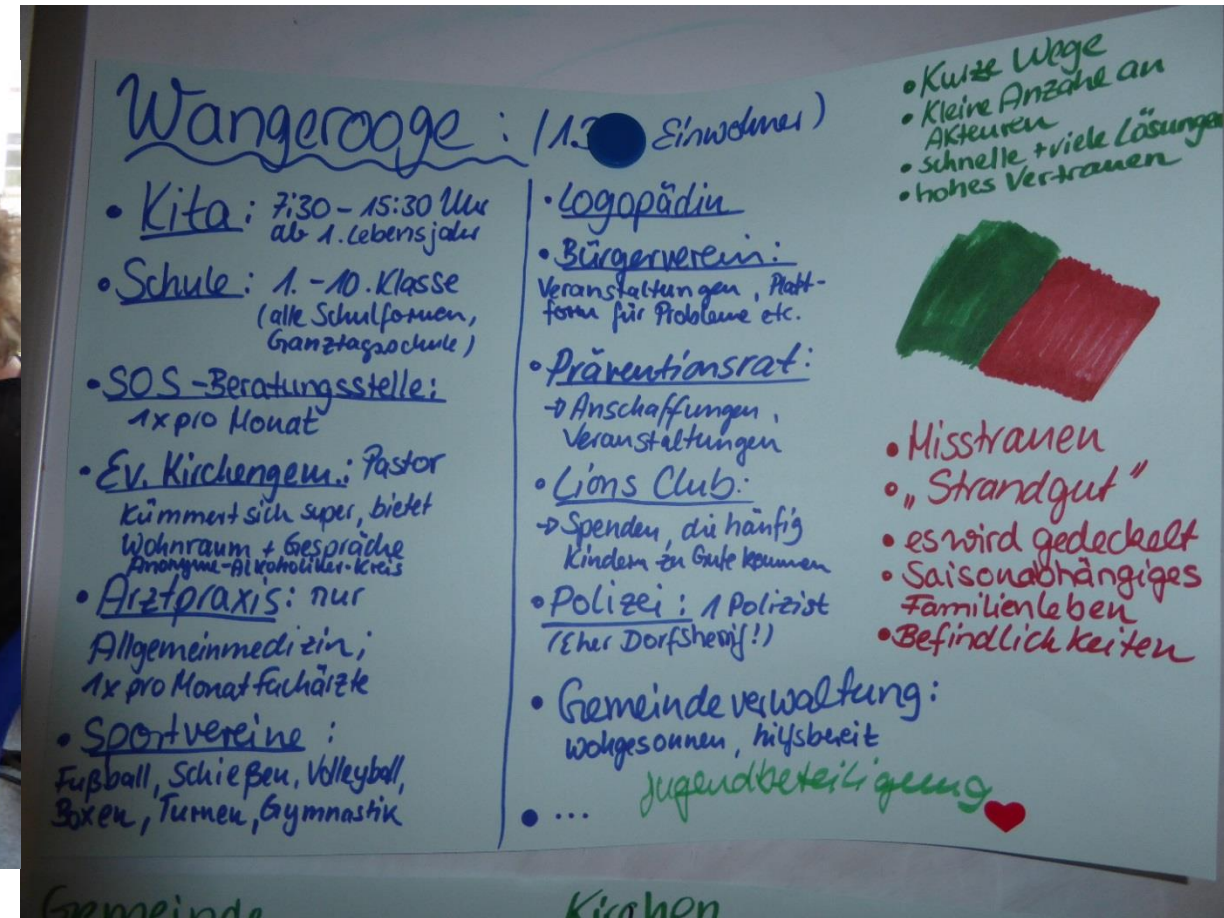 Wangerooge : (1.3 Einwohner)
• Kita: 7:30 – 15:30 Uhr
ab 1. Lebensjahr
• Schule: 1. – 10. Klasse
(alle Schulformen,
Ganztagsschule)
• SOS-Beratungsstelle:
1x pro Monat
• Ev. Kirchengem.: Pastor
kümmert sich super, bietet
Wohnraum + Gespräche
Anonyme-Alkoholiker-Kreis
• Arztpraxis: nur
Allgemeinmedizin;
1x pro Monat Fachärzte
• Sportvereine :
Fußball, Schießen, Volleyball,
Boxen, Turnen, Gymnastik
• Logopädin
• Bürgerverein:
Veranstaltungen, Platt-
form für Probleme etc.
• Präventionsrat:
→ Anschaffungen,
Veranstaltungen
• Lions Club:
→ Spenden, die häufig
Kindern zu Gute kommen
• Polizei: 1 Polizist
(Eher Dorfsherif!)
• Gemeindeverwaltung:
wohgesonnen, hilfsbereit
Jugendbeteiligung
• ...
• Kurze Wege
• Kleine Anzahl an
Akteuren
• schnelle + viele Lösungen
• hohes Vertrauen
• Misstrauen
• „Strandgut"
• es wird gedeckelt
• Saisonabhängiges
Familienleben
• Befindlichkeiten
Gemeinde Kirchen